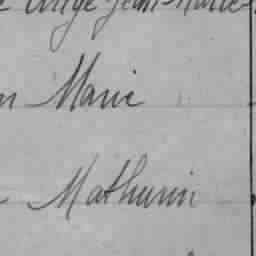 Ange Jean Marie
Marie
Mathurin